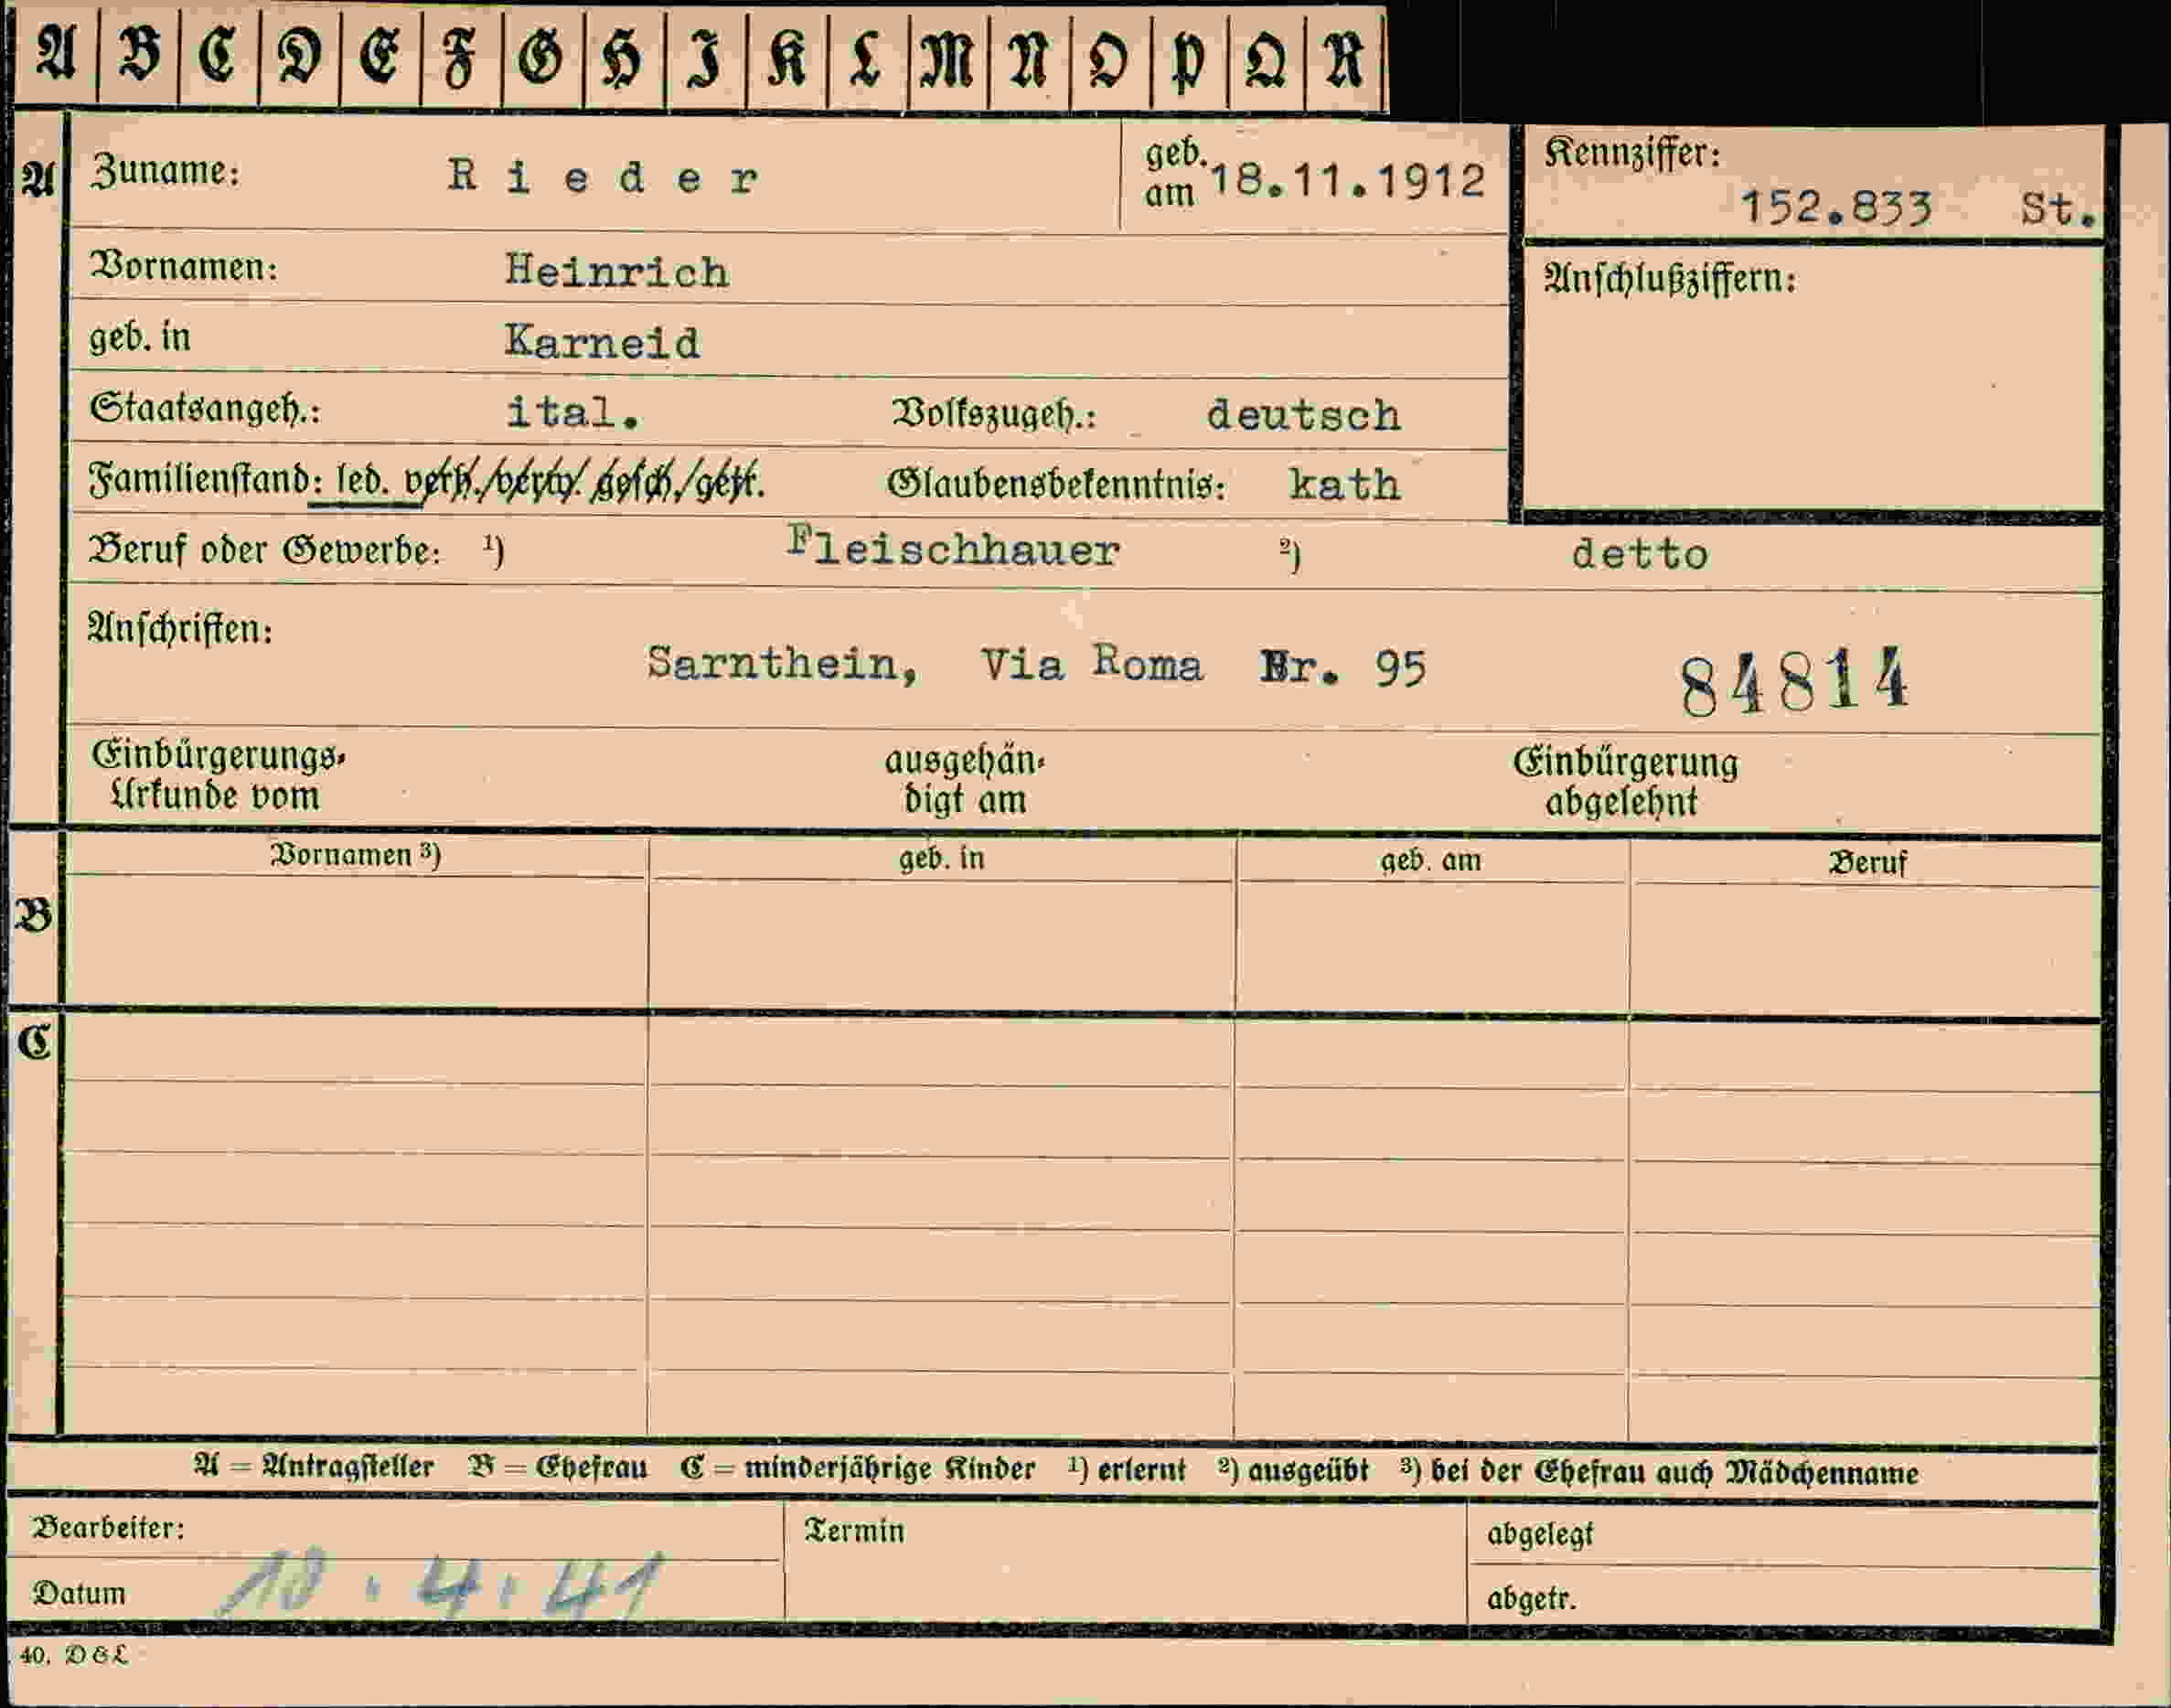 A B C D E F G H I K L M N O P Q R
A Zuname: Rieder geb. am 18.11.1912 Kennziffer: 152.833 St.
Vornamen: Heinrich Anschlußziffern:
geb. in Karneid
Staatsangeh.: ital. Volkszugeh.: deutsch
Familienstand: led. verh./verw./gesch./getr. Glaubensbekenntnis: kath
Beruf oder Gewerbe: ¹) Fleischhauer ²) detto
Anschriften:
Sarnthein, Via Roma Nr. 95 84814
Einbürgerungs- ausgehän- Einbürgerung
Urkunde vom digt am abgelehnt
Vornamen ³) geb. in geb. am Beruf
B
C
A = Antragsteller B = Ehefrau C = minderjährige Kinder ¹) erlernt ²) ausgeübt ³) bei der Ehefrau auch Mädchenname
Bearbeiter: Termin abgelegt
Datum 10.4.41 abgetr.
40. D & L